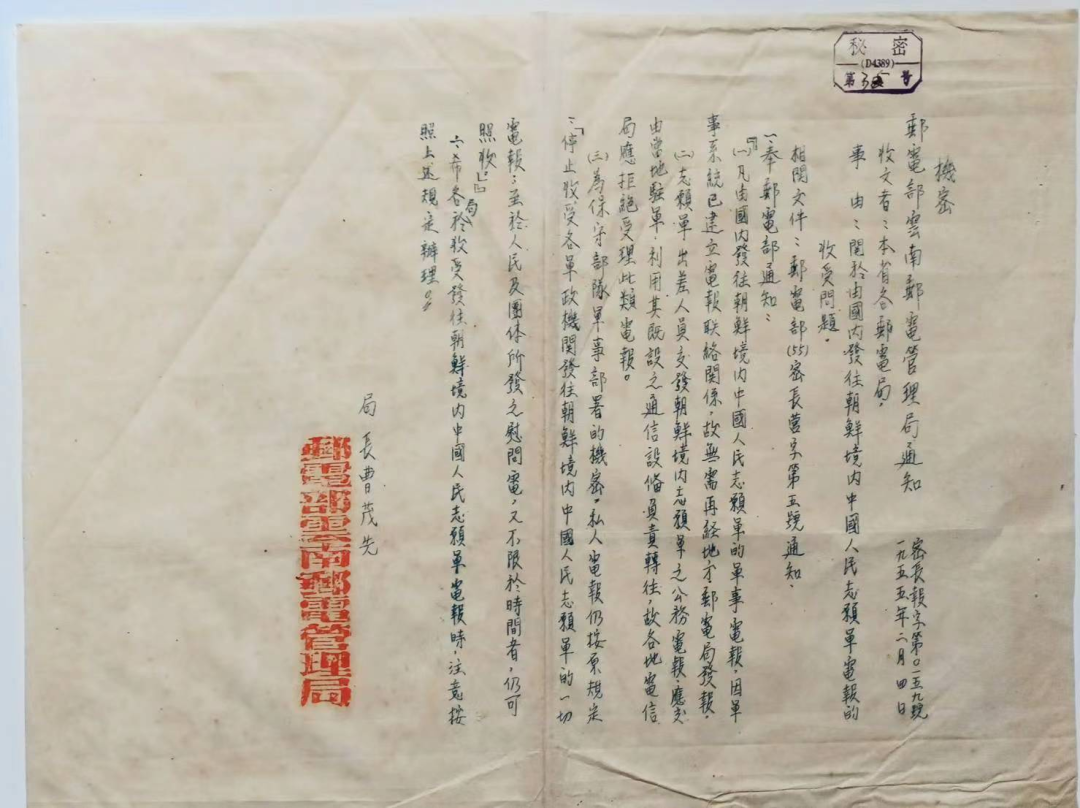 秘密
(D4389)
第35號
機密
郵電部雲南郵電管理局通知
密長報字第〇一五九號
一九五五年二月四日
收文者：本省各郵電局。
事由：關於由國內發往朝鮮境內中國人民志願軍電報的
收受問題。
相関文件：郵電部(55)密長营字第五號通知。
一、奉郵電部通知：
「『(一)凡由國內發往朝鮮境內中國人民志願軍的軍事電報，因軍
事系統已建立電報联絡関係，故無需再経地方郵電局發報。
(二)志願軍出差人員交發朝鮮境內志願軍之公務電報，應交
由當地駐軍，利用其既設之通信設俻負責轉往，故各地電信
局應拒絕受理此類電報。
(三)為保守部隊軍事部署的機密，私人電報仍按原規定
：「停止收受各軍政機関發往朝鮮境內中國人民志願軍的一切
電報；至於人民及團体所發之慰問電，又不限於時間者，仍可
照收」』
六、希各局於收受發往朝鮮境內中國人民志願軍電報時，注意按
照上述規定辦理。
局長曹茂先
郵電部雲南郵電管理局